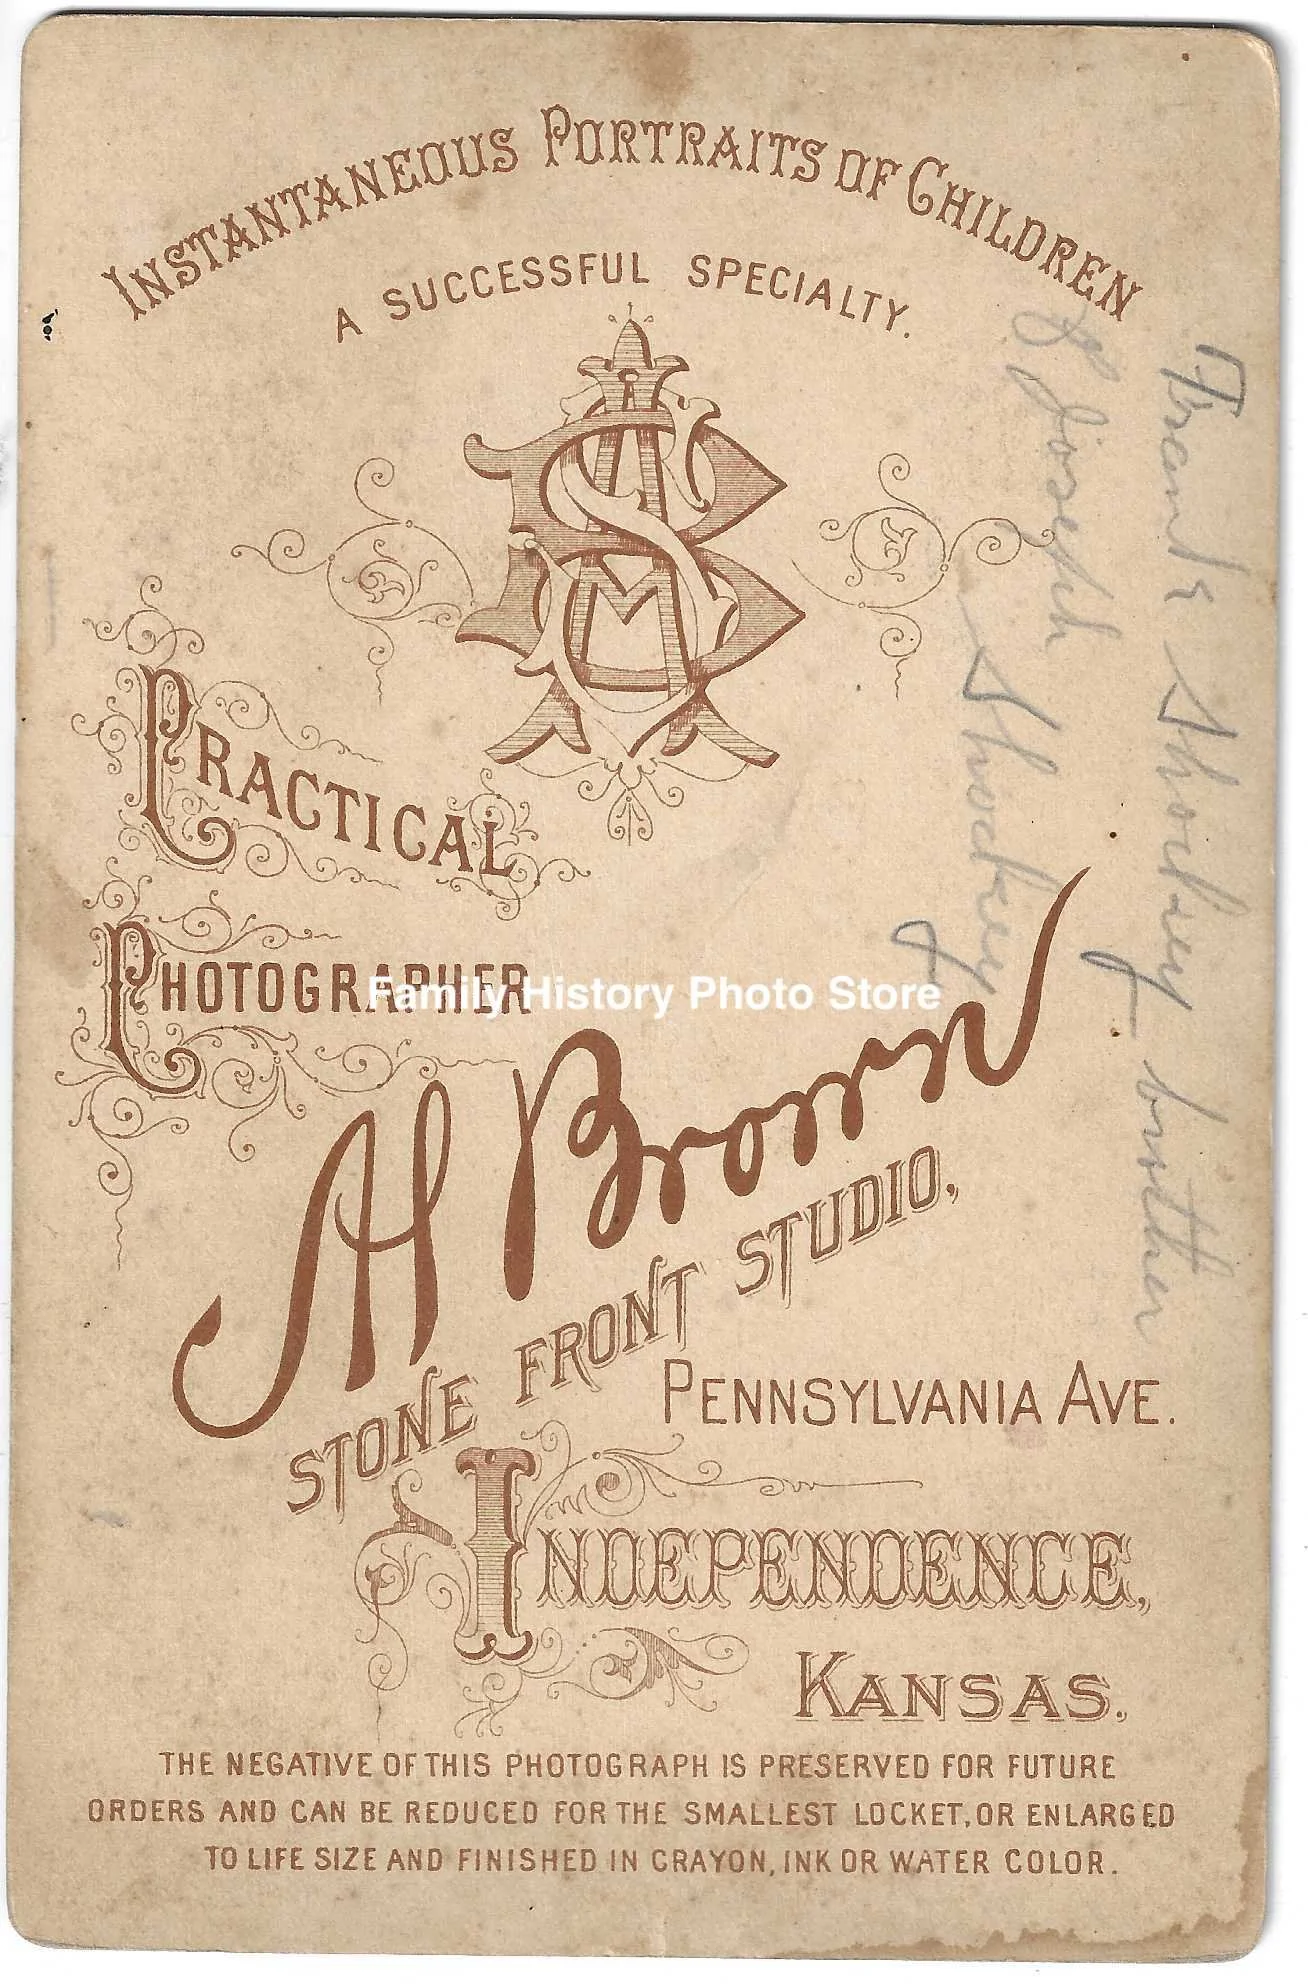 INSTANTANEOUS PORTRAITS OF CHILDREN
A SUCCESSFUL SPECIALTY.
PRACTICAL
PHOTOGRAPHER
Al Brown
STONE FRONT STUDIO,
PENNSYLVANIA AVE.
INDEPENDENCE,
KANSAS.
THE NEGATIVE OF THIS PHOTOGRAPH IS PRESERVED FOR FUTURE
ORDERS AND CAN BE REDUCED FOR THE SMALLEST LOCKET, OR ENLARGED
TO LIFE SIZE AND FINISHED IN CRAYON, INK OR WATER COLOR.
Frank Shockey - brother
& Joseph
Shockey
Family History Photo Store